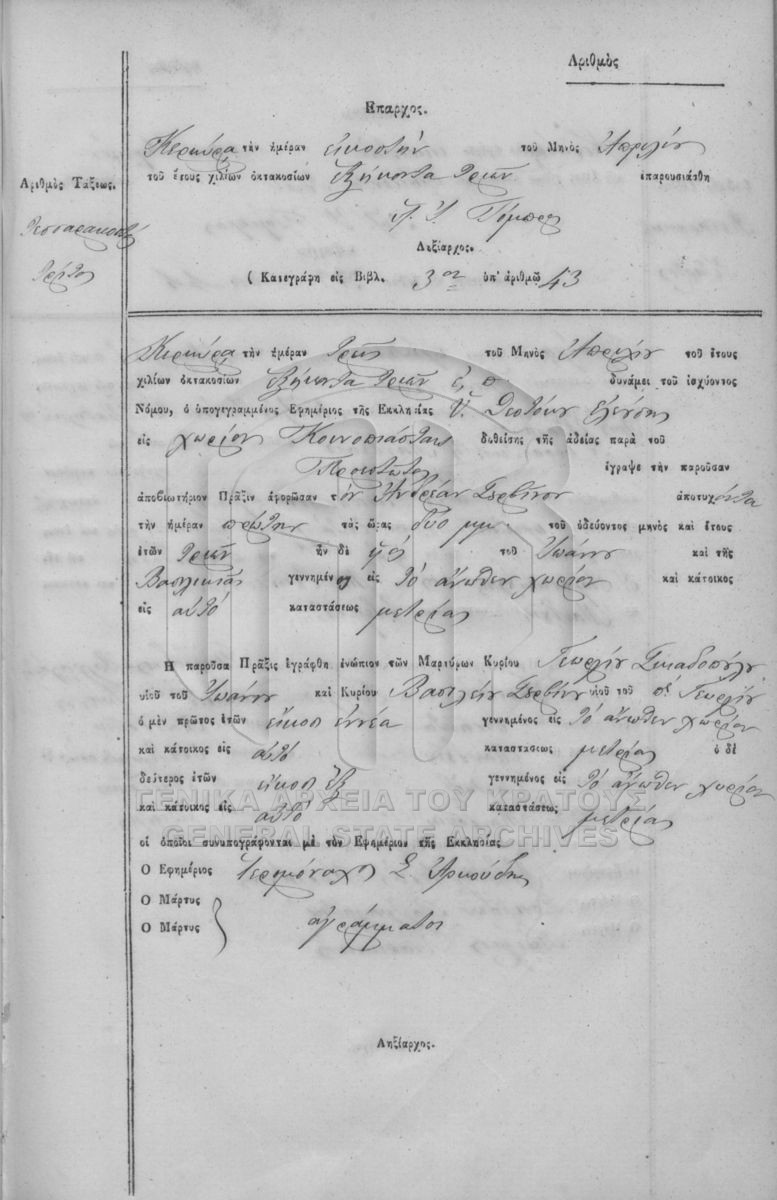 Αριθμὸς
Επαρχος.
Κερκύρα τὴν ἡμέραν εἰκοστὴν τοῦ Μηνὸς Ἀπριλίου
Αριθμὸς Τάξεως.
τοῦ ἔτους χιλίων ὀκτακοσίων ἑξήκοντα τριῶν ἐπαρουσιάσθη
Τεσσαρακοστὸς
τρίτος
Ληξίαρχος.
( Κατεγράφη εἰς Βιβλ. 3ον ὑπ' ἀριθμῶ 43
Κερκύρα τὴν ἡμέραν τρεῖς τοῦ Μηνὸς Ἀπριλίου τοῦ ἔτους
χιλίων ὀκτακοσίων ἑξήκοντα τριῶν ἐ. π δυνάμει τοῦ ἰσχύοντος
Νόμου, ὁ ὑπογεγραμμένος Εφημέριος τῆς Εκκλησίας
εἰς χωρίον Κοινοπιάσταις δοθείσης τῆς ἀδείας παρὰ τοῦ
ἔγραψε τὴν παροῦσαν
ἀποβιωτήριον Πρᾶξιν ἀφορῶσαν τὸν Ἀνδρέαν Σερβῖνον ἀποτυχόντα
τὴν ἡμέραν πρώτην τὰς ὥρας δύο μμ. τοῦ ὁδεύοντος μηνὸς καὶ ἔτους
ἐτῶν τριῶν ἦν δὲ υἱὸς τοῦ Ἰωάννου καὶ τῆς
Βασιλικῆς γεννημένος εἰς τὸ ἄνωθεν χωρίον καὶ κάτοικος
εἰς αὐτὸ καταστάσεως μετρίας
Η παροῦσα Πρᾶξις ἐγράφθη ἐνώπιον τῶν Μαρτύρων Κυρίου Γεωργίου
υἱοῦ τοῦ Ἰωάννου καὶ Κυρίου Βασιλείου Σερβίνου υἱοῦ τοῦ Γεωργίου
ὁ μὲν πρῶτος ἐτῶν εἴκοσι ἐννέα γεννημένος εἰς τὸ ἄνωθεν χωρίον
καὶ κάτοικος εἰς αὐτὸ καταστάσεως μετρίας ὁ δὲ
δεύτερος ἐτῶν εἴκοσι ἓξ γεννημένος εἰς τὸ ἄνωθεν χωρίον
καὶ κάτοικος εἰς αὐτὸ καταστάσεως μετρίας
ΓΕΝΙΚΑ ΑΡΧΕΙΑ ΤΟΥ ΚΡΑΤΟΥΣ
GENERAL STATE ARCHIVES
οἱ ὁποῖοι συνυπογράφονται μὲ τὸν Εφημέριον τῆς Εκκλησίας
Ο Εφημέριος Ἱερομόναχος Σ. Ἀρκούδης
Ο Μάρτυς
Ο Μάρτυς ἀγράμματοι
Ληξίαρχος.